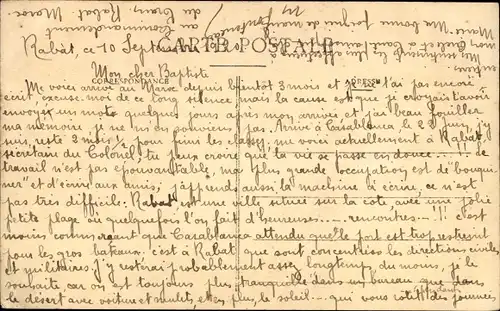 Rabat, ce 10 Septembre 1920
CARTE POSTALE
CORRESPONDANCE
ADRESSE
Mon cher Baptiste
Me voici arrivé au Maroc depuis bientôt 3 mois et je ne t'ai pas encore
écrit, excuse-moi de ce long silence, mais la cause est que je croyais t'avoir
envoyé un mot quelques jours après mon arrivée et j'ai beau fouiller
ma mémoire je ne m'en souviens pas. Arrivé à Casablanca le 22 juin, j'y
suis resté 2 mois ½ pour finir les classes, me voici actuellement à Rabat
secrétaire du Colonel, tu peux croire que la vie se passe en douce... ! le
travail n'est pas épouvantable, ma plus grande occupation est de "bouqui
ner" et d'écrire aux amis; j'apprends aussi la machine à écrire, ce n'est
pas très difficile. Rabat est une ville située sur la côte avec une jolie
petite plage où quelquefois l'on fait d'heureuses...... rencontres...!!! c'est
moins commerçant que Casablanca attendu que le port est trop restreint
pour les gros bateaux, c'est à Rabat que sont concentrées les directions civiles
et militaires. J'y resterai probablement assez longtemps du moins, je le
souhaite car on est toujours plus tranquille dans un bureau que dans
le désert avec voiture et mulets, et en plus, le soleil... qui vous rôtit des journées